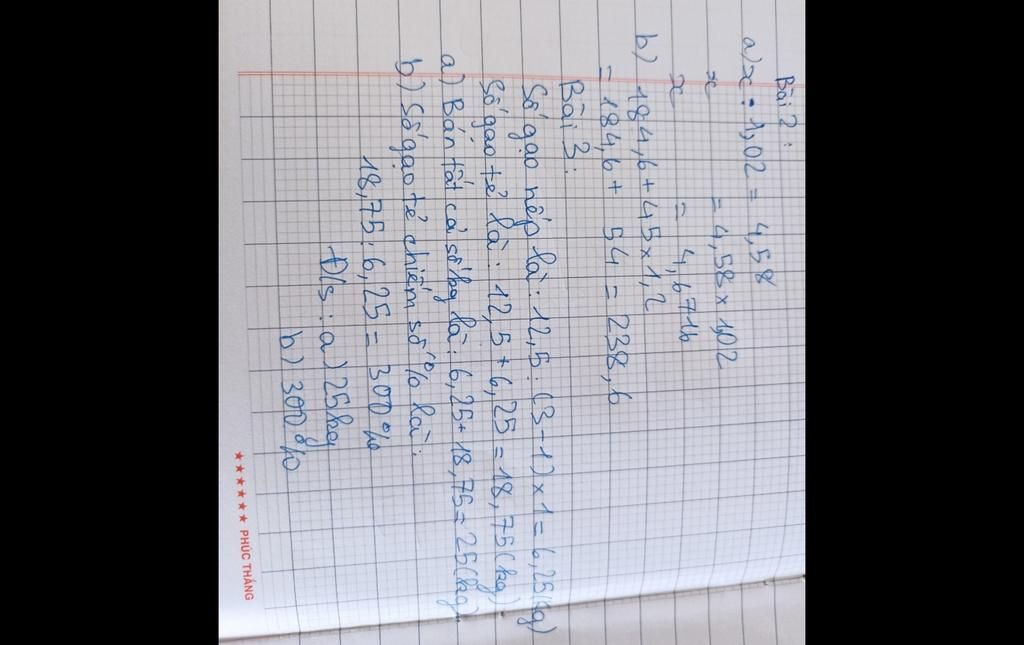 Bài 2:
a) x : 1,02 = 4,58
x = 4,58 x 1,02
x = 4,6716
b) 184,6 + 45 x 1,2
= 184,6 + 54 = 238,6
Bài 3:
Số gạo nếp là: 12,5 : (3-1) x 1 = 6,25(kg)
Số gạo tẻ là: 12,5 + 6,25 = 18,75(kg)
a) Bán tất cả số kg là: 6,25 + 18,75 = 25(kg)
b) Số gạo tẻ chiếm số % là:
18,75 : 6,25 = 300%
Đ/s: a) 25kg
b) 300%
★★★★★★ PHÚC THẮNG